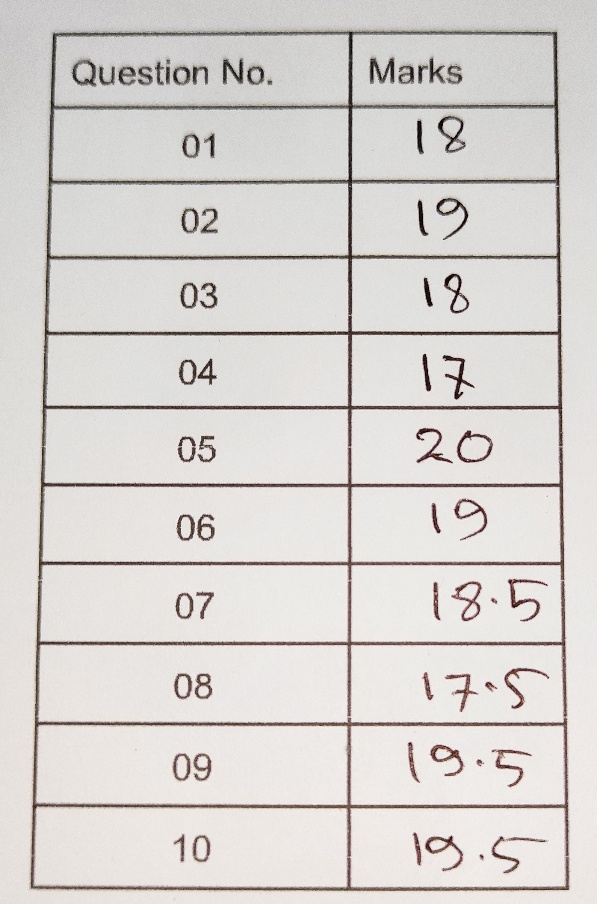 Question No. Marks
01 18
02 19
03 18
04 17
05 20
06 19
07 18.5
08 17.5
09 19.5
10 19.5